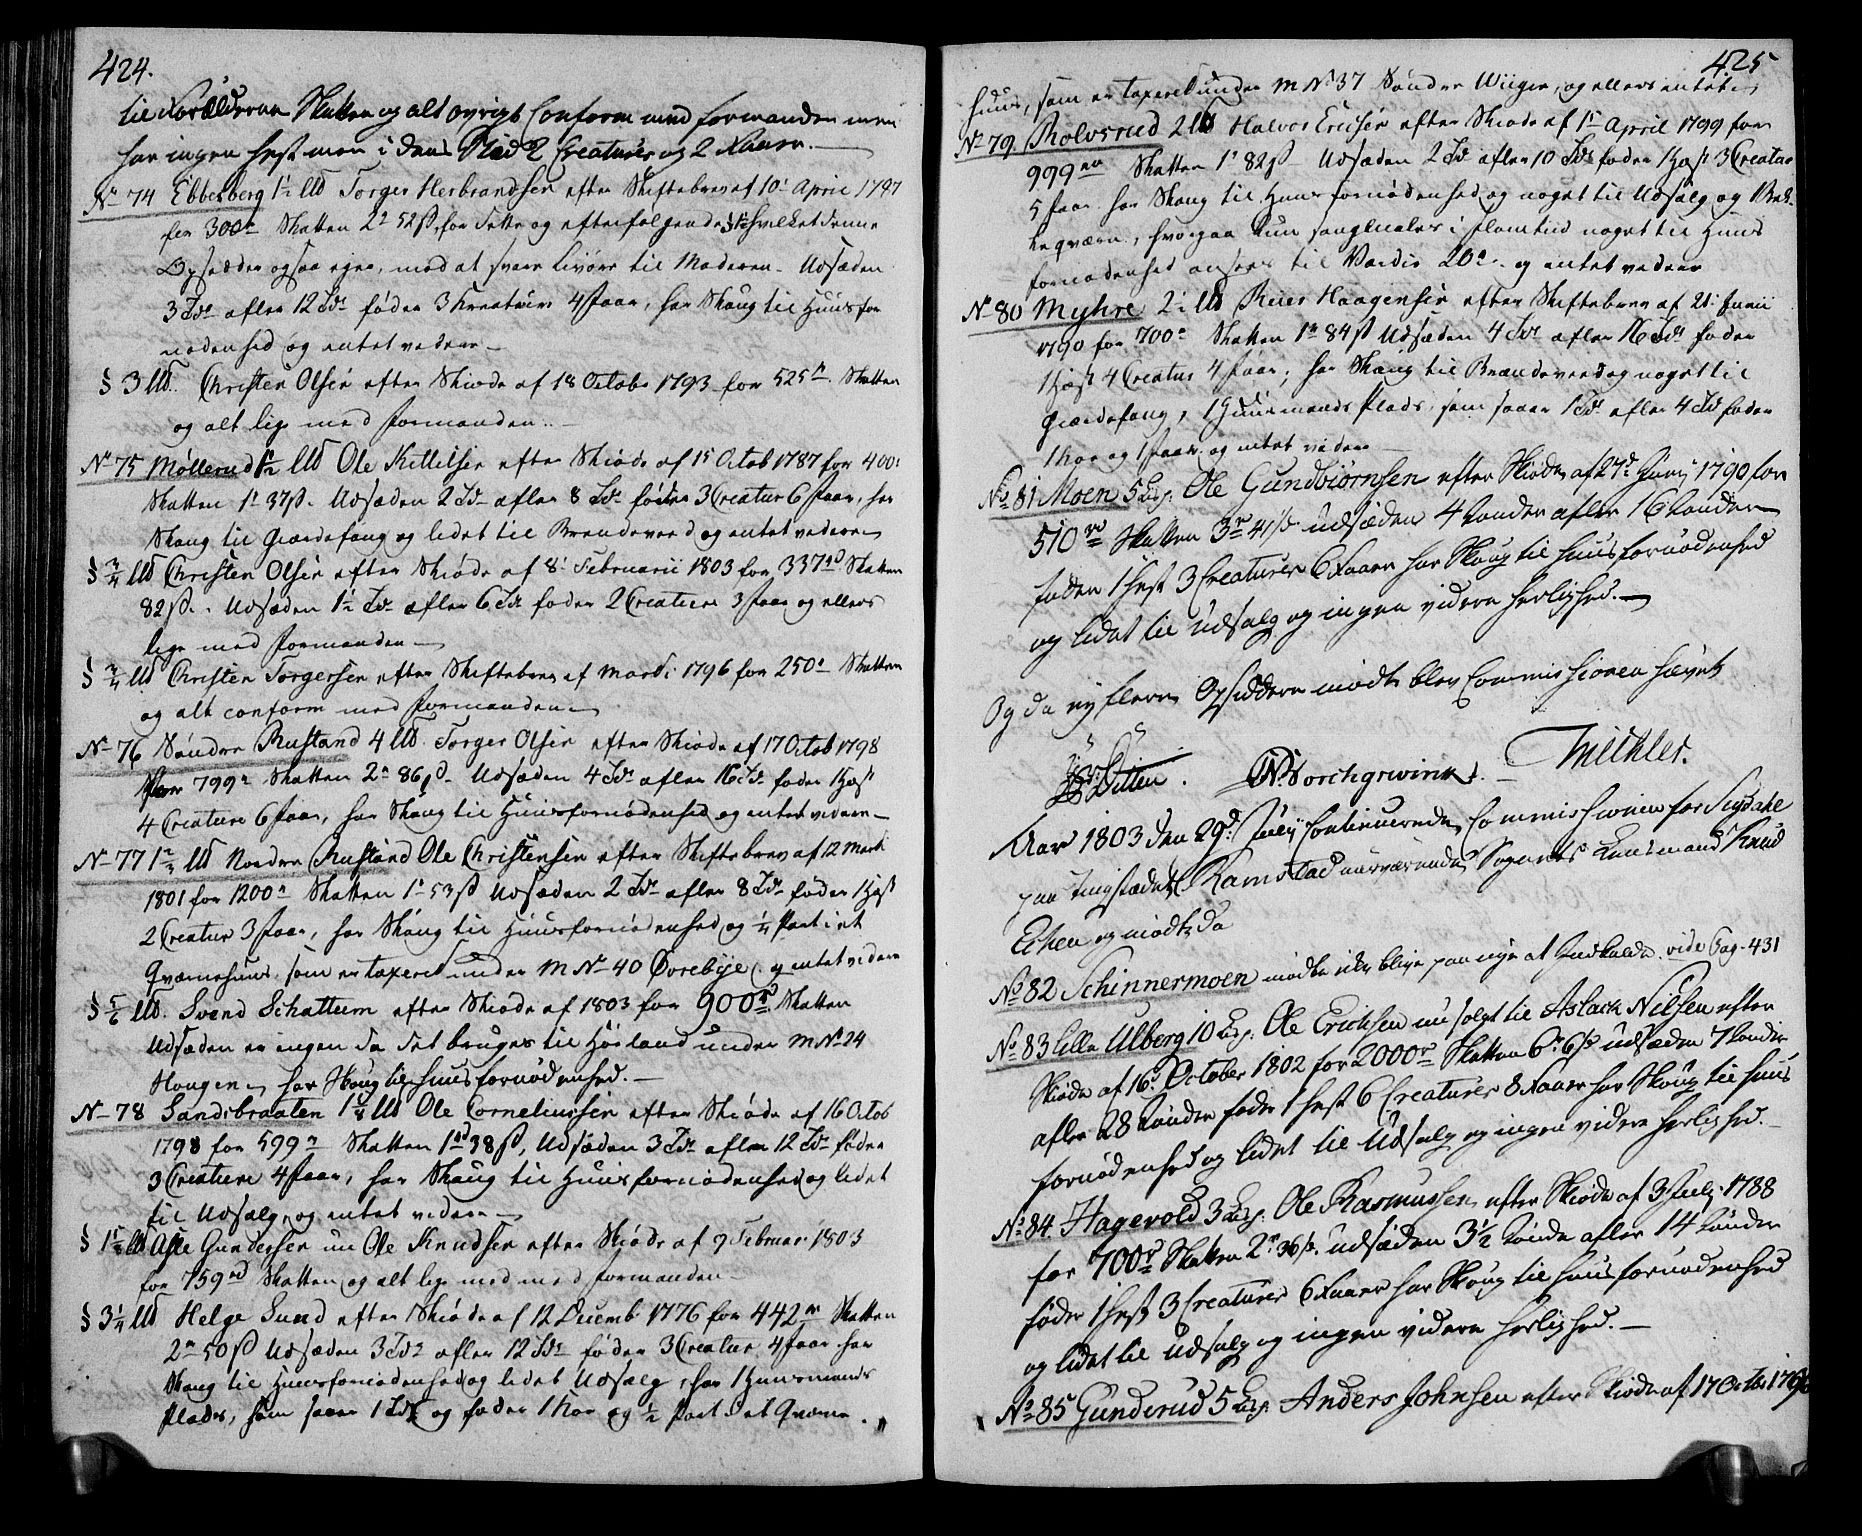 424.
til Forældrene Skatten og alt øvrigt Conform med formanden men
har ingen Hest men i dens Sted 2 Creaturer og 2 Faarer.
No 74 Ebbesberg 1½ Lb Torger Herbrandsen efter Skiftebrev af 10 April 1787
for 300r Skatten 2r 52s, for dette og efterfølgende § hvilket denne
Opsidder ogsaa ejer, mod at svare livøre til Moderen. Udsæden
3 Tdr afler 12 Tdr føder 3 Kreaturer 4 Faar, har Skaug til Huusfor
nødenhed og intet videre
§ 3 Lb. Christen Olsen efter Skiøde af 18 Octobr 1793 for 525r. Skatten
og alt lige med formanden.
No 75 Møllerud 1½ Lb Ole Kittilsen efter Skiøde af 15 Octob 1787 for 400r
Skatten 1r 37s. Udsæden 2 Tdr afler 8 Tdr føder 3 Creatur 6 Faar, har
Skaug til Giærdefang og lidet til Brendeveed og intet videre
§ ¾ Lb Christen Olsen efter Skiøde af 8 Februarii 1803 for 337rd Skatten
82s. Udsæden 1½ Td afler 6 Tdr føder 2 Creature 3 Faar og ellers
lige med formanden
§ ¾ Lb Christen Torgersen efter Skiftebrev af Marti 1796 for 250r Skatten
og alt conform med formanden
No 76 Søndre Rustand 4 Lb. Torger Olsen efter Skiøde af 17 Octob 1798
for 799r Skatten 2r 86s. Udsæden 4 Tdr afler 16 Tdr føder 1 Hest
4 Creature 6 Faar, har Skaug til Huusfornødenhed og intet videre
No 77 1½ Lb Nordre Rustand Ole Christensen efter Skiftebrev af 12 Marti
1801 for 1200r Skatten 1r 53s Udsæden 2 Tdr afler 8 Tdr føder 1 Hest
2 Creatur 3 Faar, har Skaug til Huusfornødenhed og ¼ Part i et
Qværnehuus, som er taxeret under M No 40 Øvrebye, og intet videre
§ 5/6 Lb. Svend Schattum efter Skiøde af 1803 for 900rd Skatten
Udsæden er ingen da det bruges til Hörland under M No 24
Haugen, har Skoug til huusfornødenhed.
No 78 Sandsbraaten 1¼ Lb Ole Corneliussen efter Skiøde af 16 Octob
1798 for 599r Skatten 1rd 38s, Udsæden 3 Tdr afler 12 Tdr føder
3 Creature 4 Faar, har Skaug til Huusfornødenhed og lidet
til Udsalg, og intet videre
§ Asle Gundersen nu Ole Knudsen efter Skiøde af 9 Februar 1803
for 759rd Skatten og alt lige med med formanden
§ 3¼ Lb Helge Lund efter Skiøde af 12 Decembr 1776 for 442rd Skatten
2r 50s Udsæden 3 Tdr afler 12 Tdr føder 3 Creatur 4 Faar har
Skaug til Huusfornødenhed og lidet Udsalg, har 1 Huusmands
plads, som saaer 1 Td og føder 1 Koe og ½ Part i et Qværne
425
huus, som er taxeret under M No 37 Søndre Wiiger, og ellers intet
No 79 Rolvsrud 2 Lb Halvor Erichsen efter Skiøde af 1 April 1799 for
999rd Skatten 1r 82s Udsæden 2 Td afler 10 Tdr føder 1 Hest 3 Creatur
5 Faar har Skaug til Huusfornødenhed og noget til Udsalg og Bek-
keqværn, hvorpaa kun maales i flomtid noget til Huus
fornødenhed ansees til Værdie 20r og intet videre
No 80 Myhre 2½ Lb Reier Haagensen efter Skiftebrev af 21 Junii
1790 for 700r Skatten 1r 84s Udsæden 4 Tdr afler 16 Tdr føder
1 Hest 4 Creatur 4 Faar, har Skaug til Brændeveed og noget til
Giærdefang, 1 Huusmands Plads, som saaer 1 Td afler 4 Td føder
1 Koe og 1 Faar og intet videre
No 81 Moen 5 Lisp. Ole Gundbiørnsen efter Skiøde af 27d Junij 1790 for
510rd Skatten 3r 41s udsæden 4 tønder afler 16 tønder
føder 1 hest 3 Creaturer 6 Faarer har Skoug til huusfornødenhed
og lidet til udsalg og ingen videre herlighed.
Og da ej flere Opsiddere mødte blev Commissionen hævet
Ditten. N: Borchgrevink. Meckler.
Aar 1803 den 29d July continuerede Commissionen for Sigdahl
paa Tingstædet Ramstad nærværende Sognets Lensmand Knud
Echen og mødte da
No 82 Schinnermoen mødte ikke blive paa nye at Indkalde. vide Pag. 431
No 83 Lille Ulberg 10 Lisp. Ole Erichsen nu solgt til Aslack Nilsen efter
Skiøde af 16d October 1802 for 2000rd Skatten 6r 6s udsæden 7 tønder
afler 28 tønder føder 1 hest 6 Creaturer 8 Faarer har Skoug til huus
fornødenhed og lidet til Udsalg og ingen videre herlighed.
No 84. Hagevold 3 Lisp. Ole Rasmussen efter Skiøde af 3 July 1788
for 700rd Skatten 2r 36s. udsæden 3½ tønde afler 14 tønder
føder 1 hest 3 Creaturer 6 Faarer har Skoug til huusfornødenhed
og lidet til udsalg og ingen videre herlighed.
No 85 Gunderud 5 Lisp. Anders Johnsen efter Skiøde af 17 Octobr